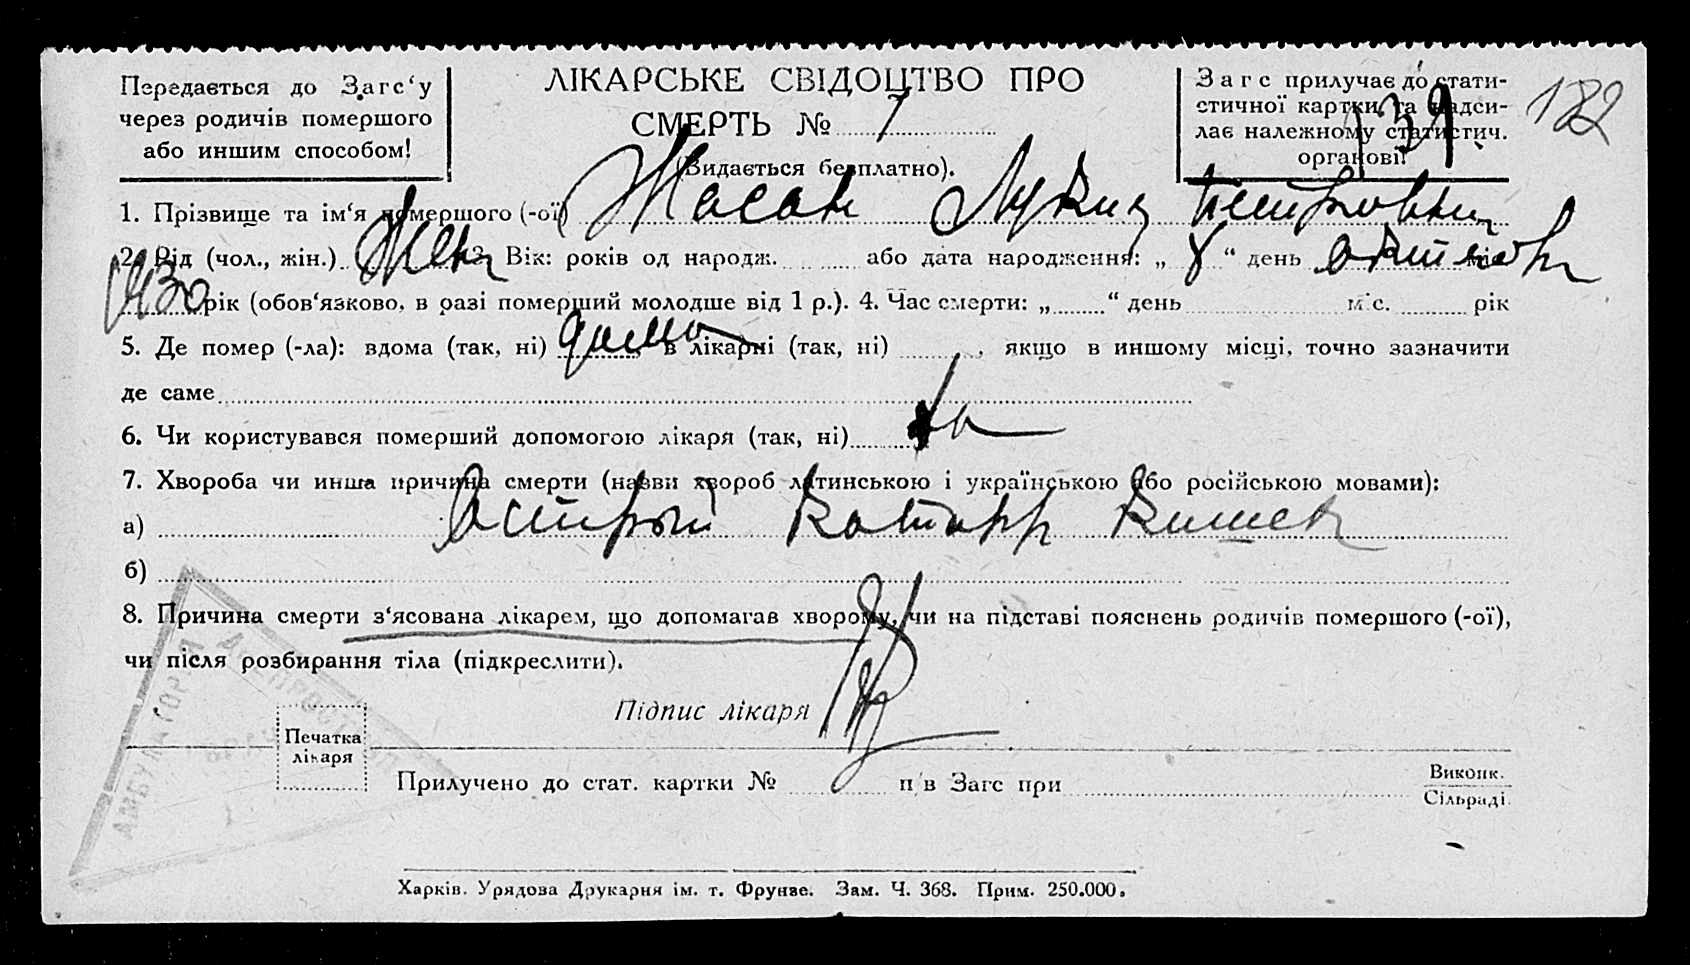 Передається до Загс‘у
через родичів помершого
або иншим способом!
ЛІКАРСЬКЕ СВІДОЦТВО ПРО
СМЕРТЬ № 7
(Видається безплатно).
Загс прилучає до стати-
стичної картки та надси-
лає належному статистич.
органові!
139
182
1. Прізвище та ім‘я помершого (-ої)
2. Рід (чол., жін.) Жен 3. Вік: років од народж. або дата народження: „ 8 “ день октября міс.
1930 рік (обов‘язково, в разі померший молодше від 1 р.). 4. Час смерти: „ “ день міс. рік
5. Де помер (-ла): вдома (так, ні) дома, в лікарні (так, ні) , якщо в иншому місці, точно зазначити
де саме
6. Чи користувався померший допомогою лікаря (так, ні)
7. Хвороба чи инша причина смерти (назви хвороб латинською і українською або російською мовами):
а) Острый катарр кишек
б)
8. Причина смерти з‘ясована лікарем, що допомагав хворому, чи на підставі пояснень родичів помершого (-ої),
чи після розбирання тіла (підкреслити).
Підпис лікаря
Печатка
лікаря
Прилучено до стат. картки № п/в Загс при Виконк.
Сільраді.
Харків. Урядова Друкарня ім. т. Фрунзе. Зам. Ч. 368. Прим. 250.000.